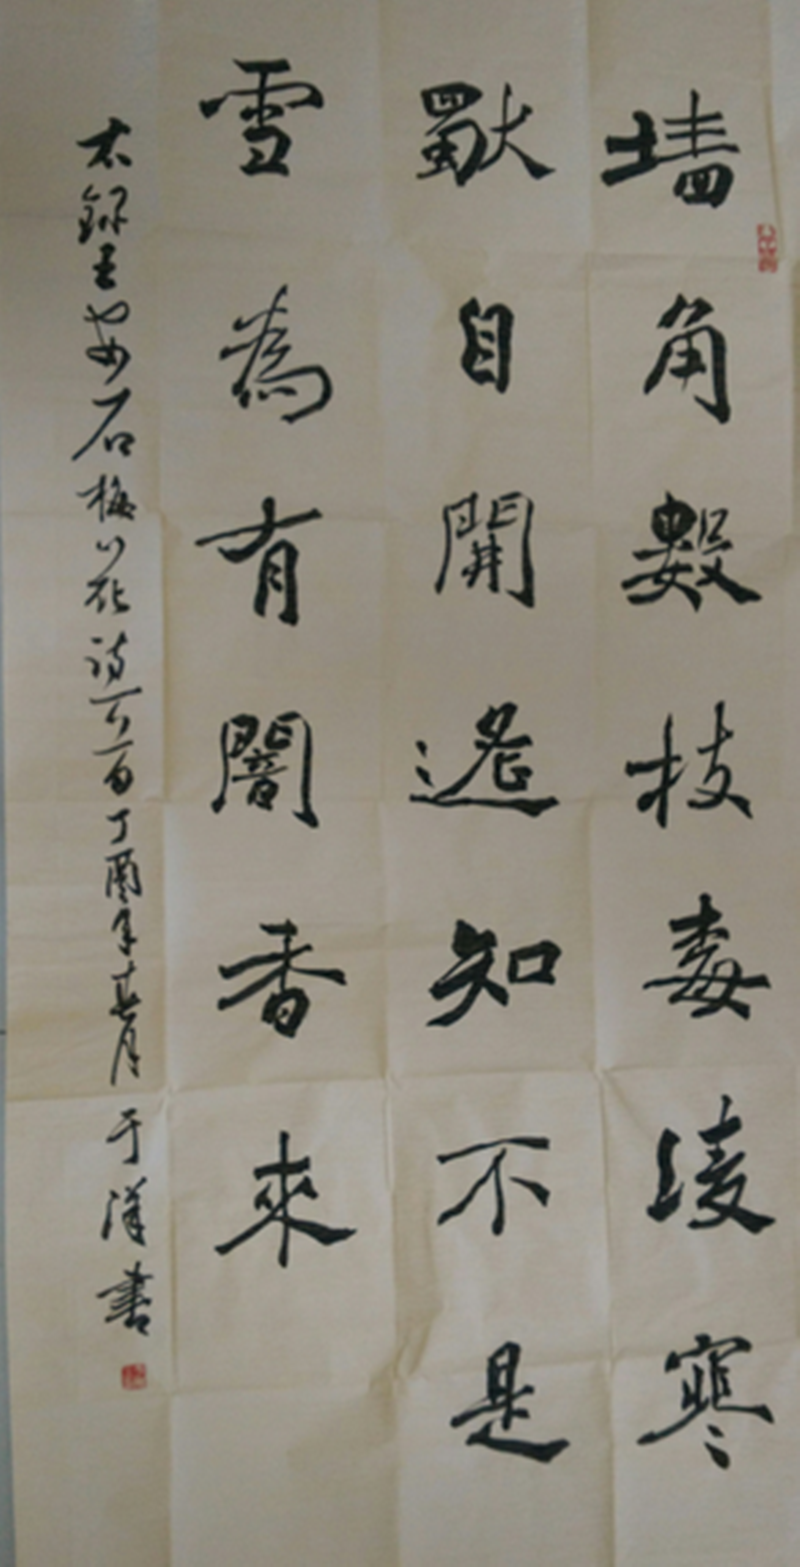 墙角數枝毒陵寒
獨自開遙知不是
雪為有闇香來
右錄王安石梅花詩一首丁酉年春月于洋書